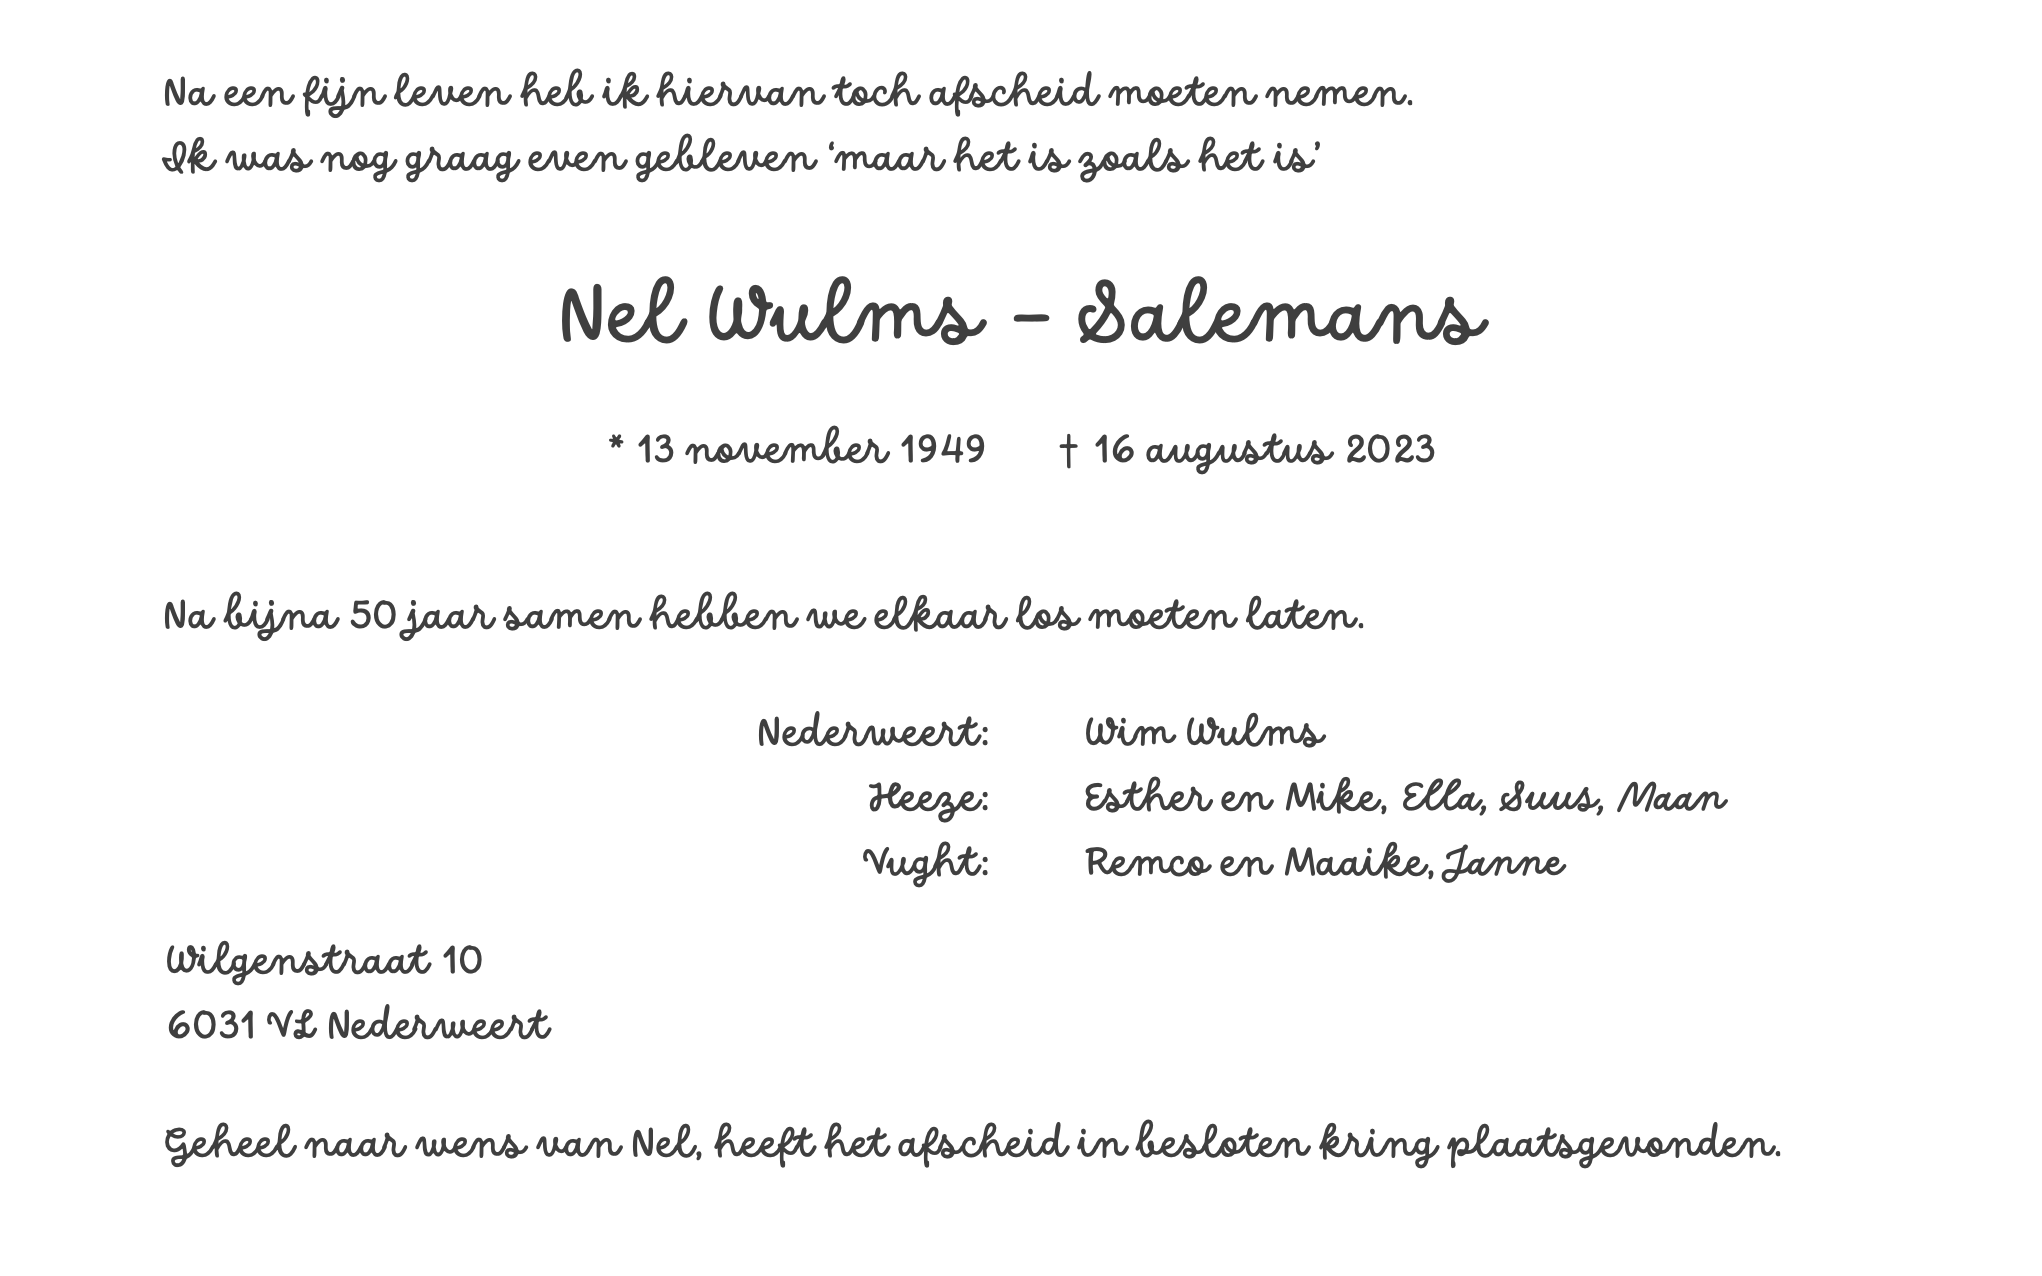 Na een fijn leven heb ik hiervan toch afscheid moeten nemen.
Ik was nog graag even gebleven ‘maar het is zoals het is’
Nel Wulms – Salemans
* 13 november 1949 † 16 augustus 2023
Na bijna 50 jaar samen hebben we elkaar los moeten laten.
Nederweert: Wim Wulms
Heeze: Esther en Mike, Ella, Suus, Maan
Vught: Remco en Maaike, Janne
Wilgenstraat 10
6031 VL Nederweert
Geheel naar wens van Nel, heeft het afscheid in besloten kring plaatsgevonden.